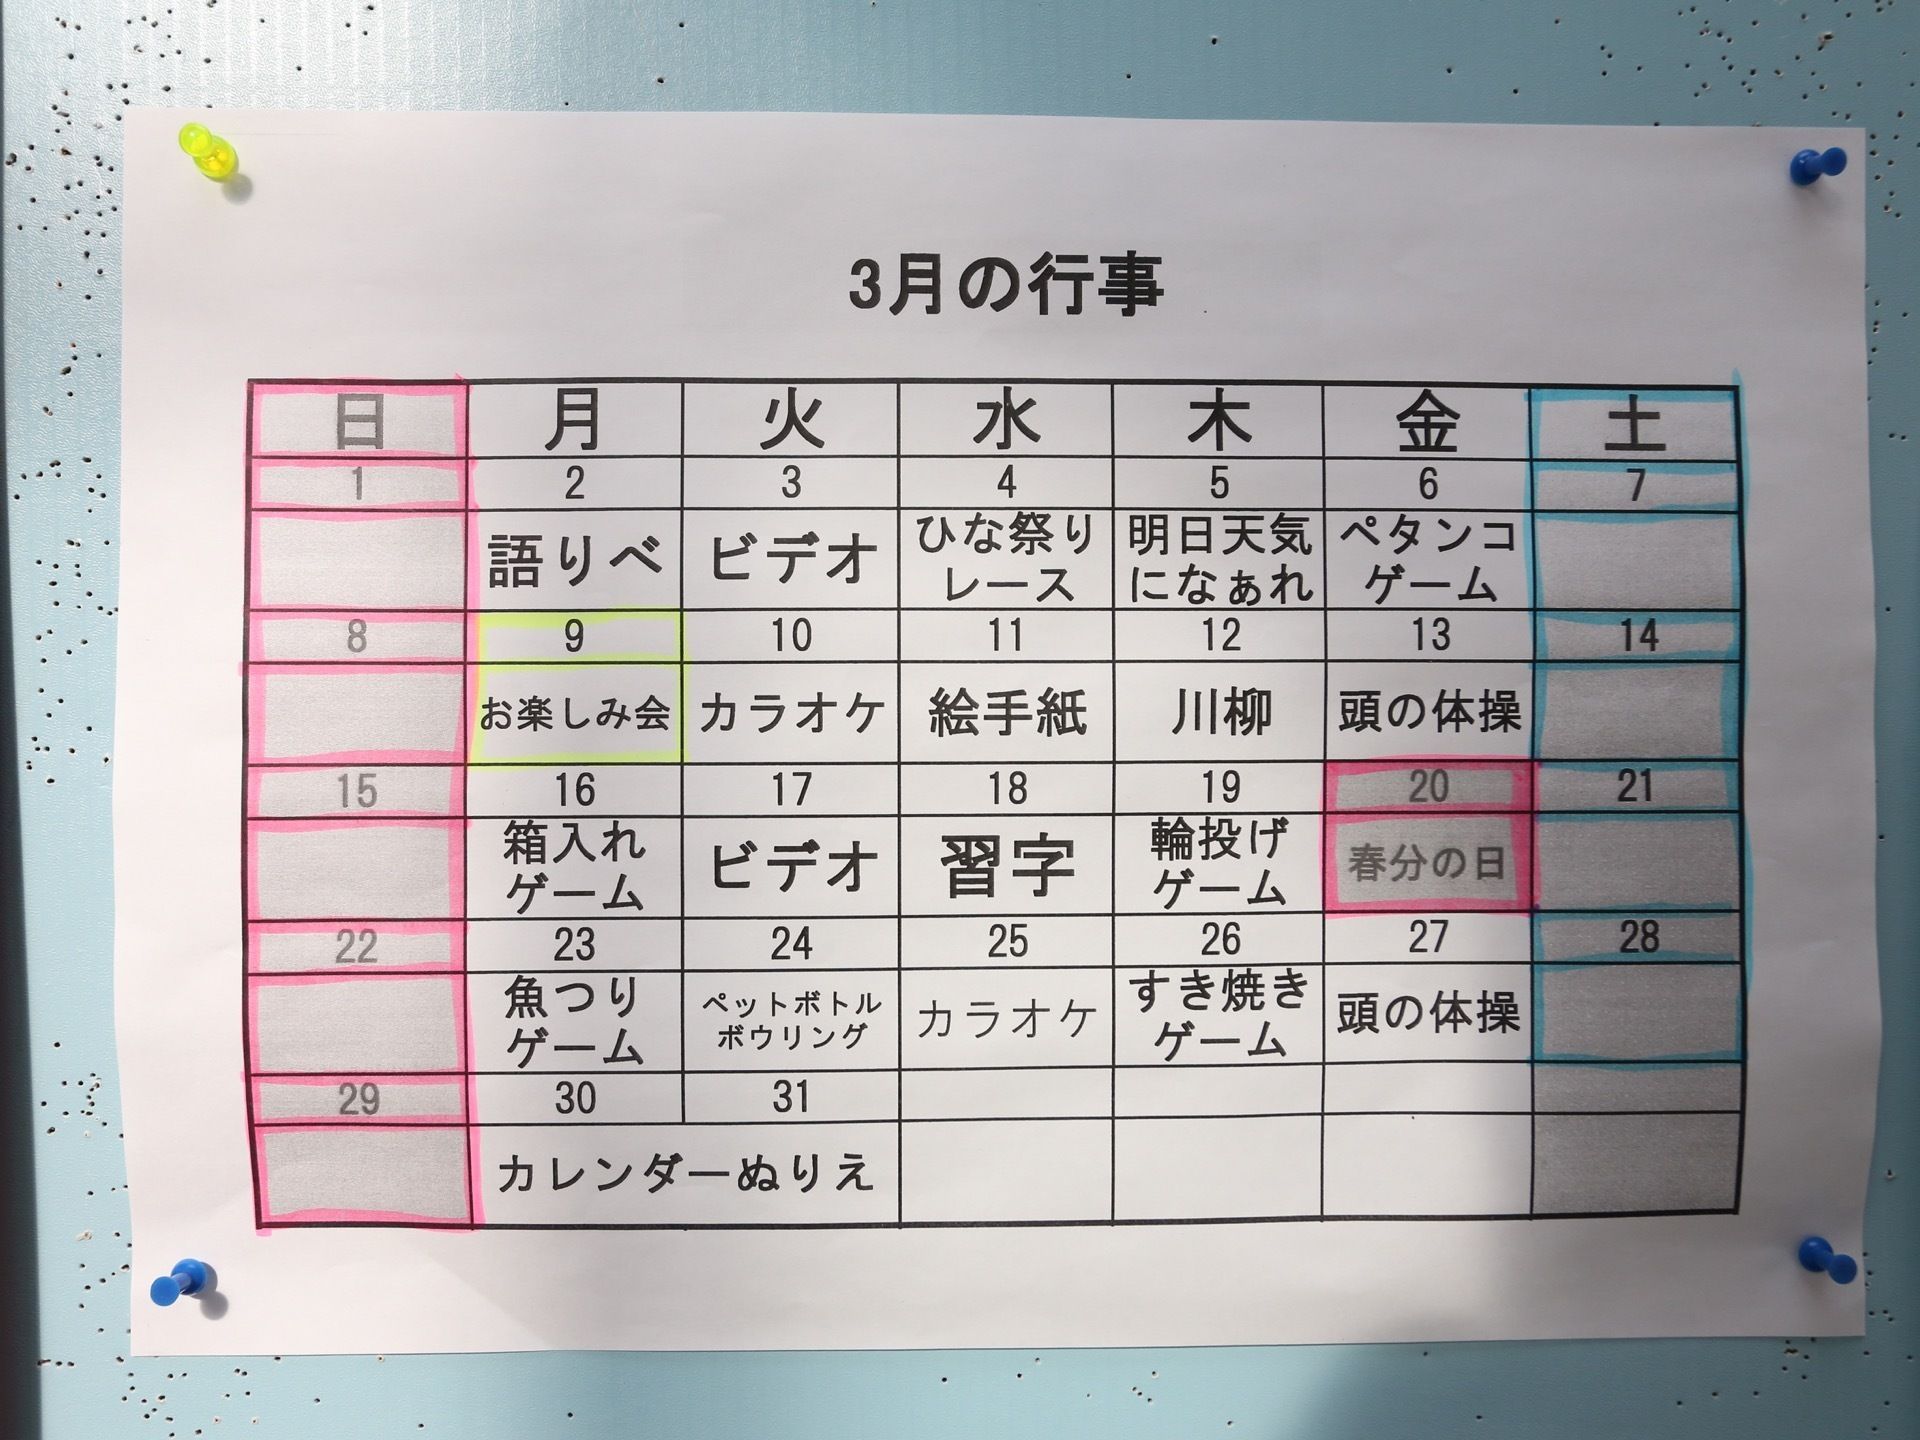 3月の行事
日 月 火 水 木 金 土
1 2 3 4 5 6 7
語りべ ビデオ ひな祭り 明日天気 ペタンコ
レース になぁれ ゲーム
8 9 10 11 12 13 14
お楽しみ会 カラオケ 絵手紙 川柳 頭の体操
15 16 17 18 19 20 21
箱入れ ビデオ 習字 輪投げ 春分の日
ゲーム ゲーム
22 23 24 25 26 27 28
魚つり ペットボトル カラオケ すき焼き 頭の体操
ゲーム ボウリング ゲーム
29 30 31
カレンダーぬりえ